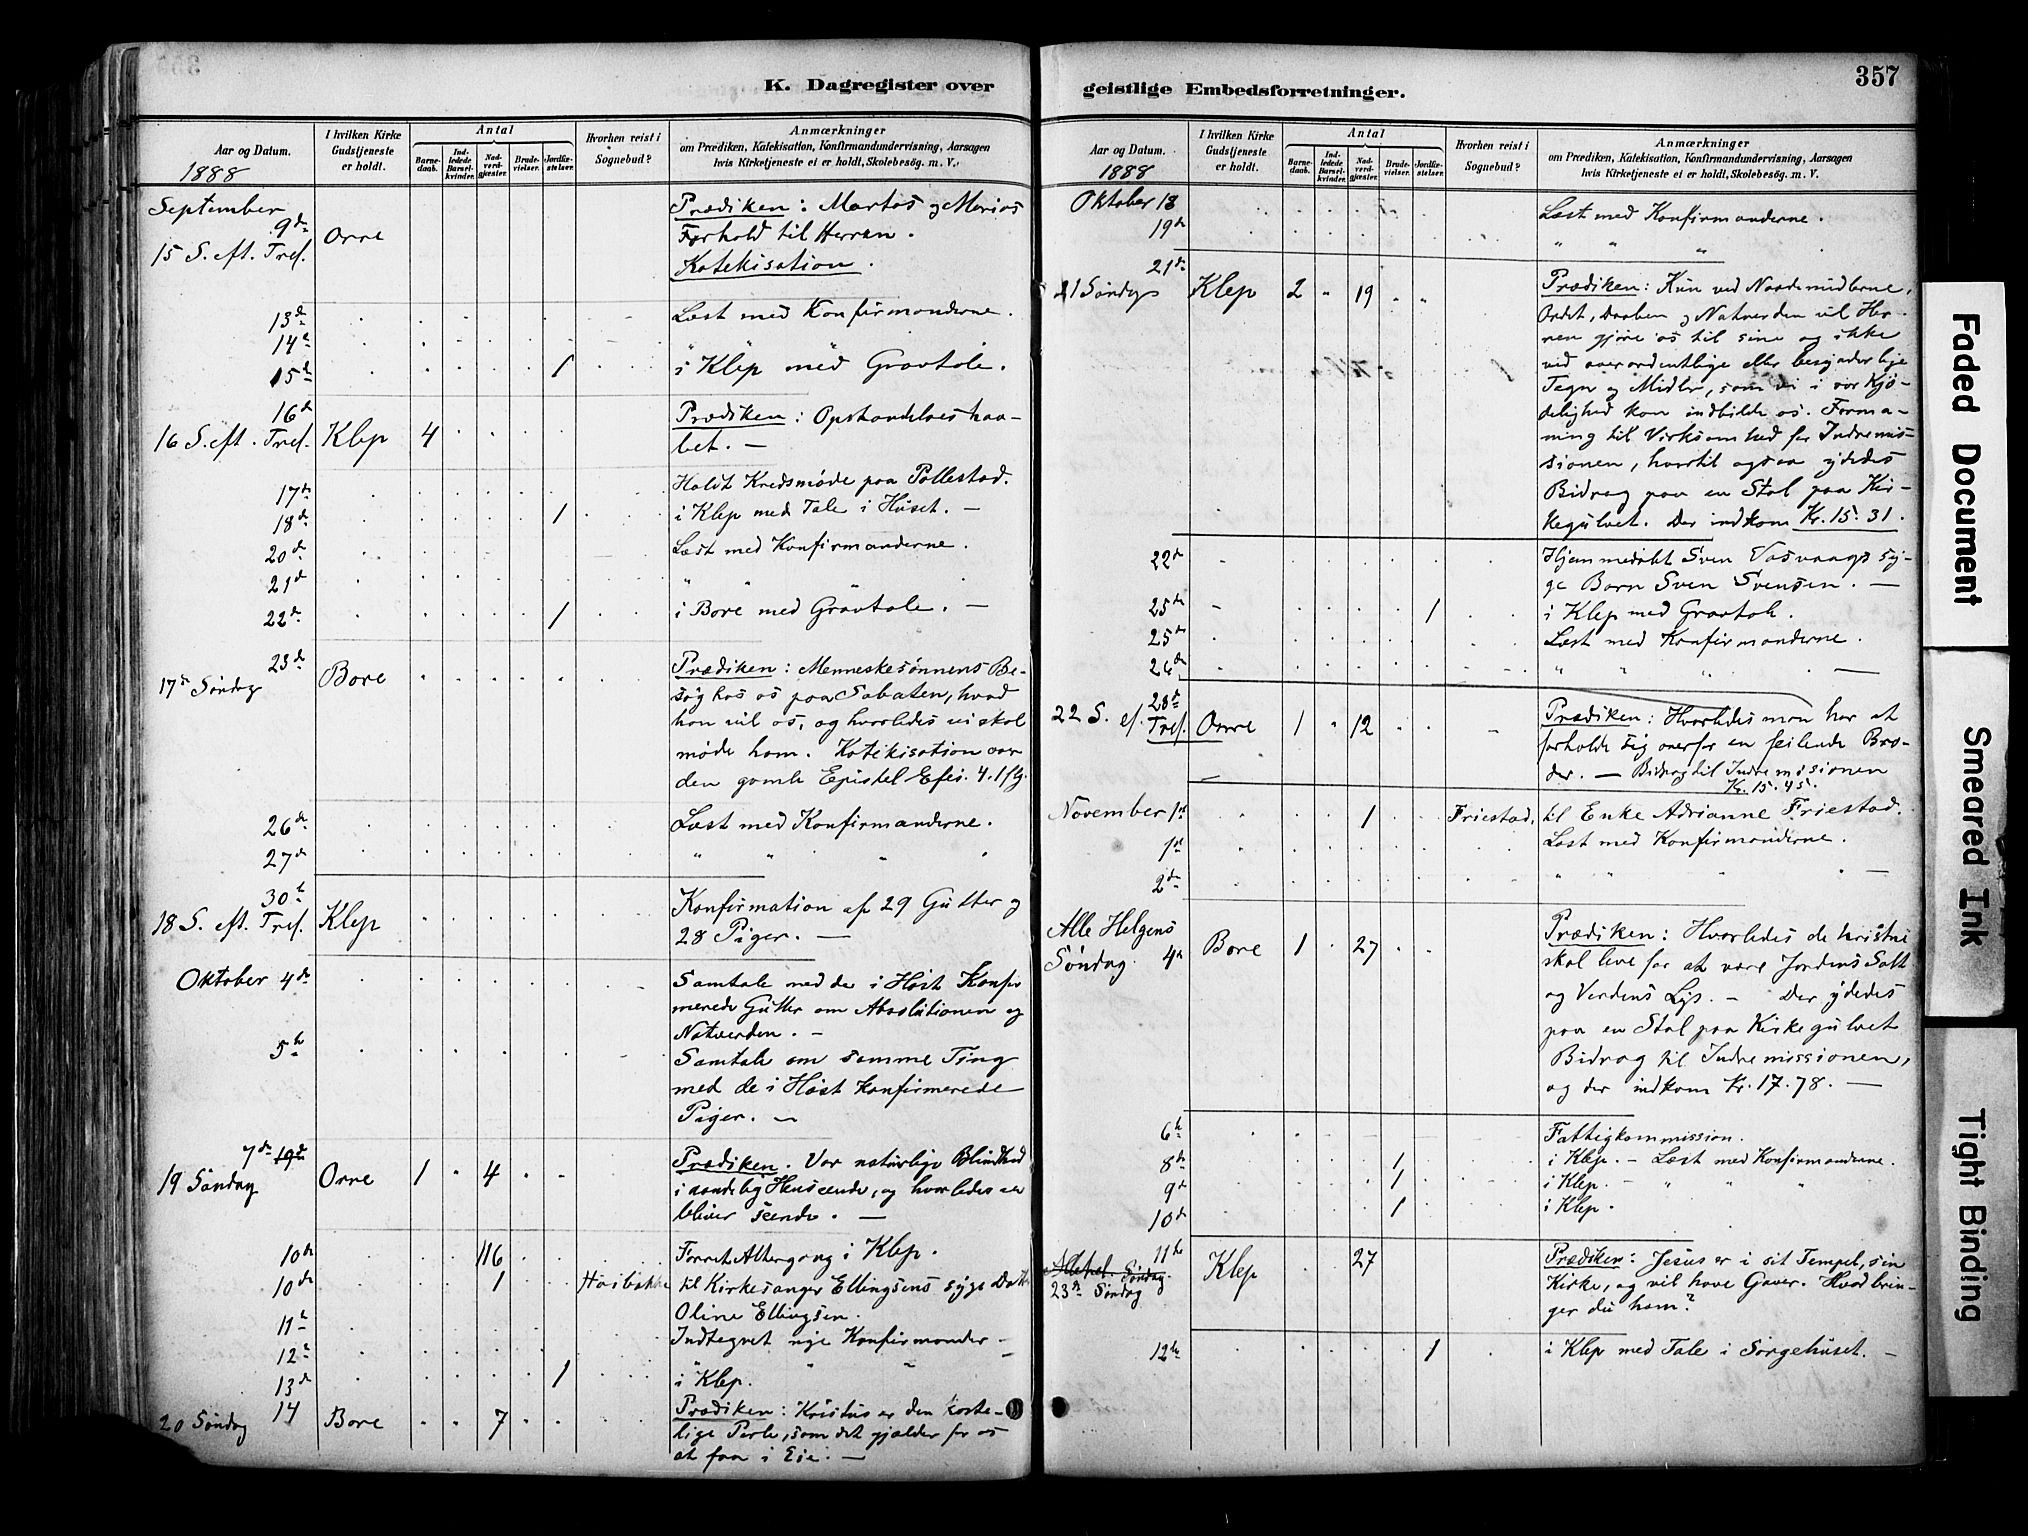 K. Dagregister over
Aar og Datum.
1888
I hvilken Kirke Gudstjeneste er holdt.
Antal
Barnedaab.
Indledede Barselkvinder.
Nadverdgjæster.
Brudevielser.
Jordfæstelser.
Hvorhen reist i Sognebud?
Anmærkninger
om Prædiken, Katekisation, Konfirmandundervisning, Aarsagen
hvis Kirketjeneste ei er holdt, Skolebesøg. m. V.
September
9de
15 S. eft. Tref. Orre
Prædiken: Martas og Marias
Forhold til Herren.
Katekisation.
13de Læst med Konfirmanderne.
14de " "
15de 1 i Klep med Gravtale.
16de
16 S. eft. Tref. Klep 4
Prædiken: Opstandelseshaa-
bet. —
17de Holdt Kredsmøde paa Pollestad.
18de 1 i Klep med Tale i Huset. —
20de Læst med Konfirmanderne.
21de " "
22de 1 i Bore med Gravtale. —
23de
17de Søndag Bore
Prædiken: Menneskesønnens Be-
søg hos os paa Sabaten, hvad
han vil os, og hvorledes vi skal
møde ham. Katekisation over
den gamle Epistel Efes. 4. 1 flg.
26de Læst med Konfirmanderne.
27de " " " "
30te
18 S. eft. Tref. Klep
Konfirmation af 29 Gutter og
28 Piger. —
Oktober 4de
Samtale med de i Høst Konfir
merede Gutter om Absolutionen og
Natverden. —
5te
Samtale om samme Ting
med de i Høst konfirmerede
Piger. —
7de 19de
19 Søndag Orre 1 " 4
Prædiken. Vor naturlige Blindhed
i aandelig Henseende, og hvorledes vi
bliver seende. —
10de 116 Forret Altergang i Klep.
10de 1 Høibakke til Kirkesanger Ellingsens syge Datter
Oline Ellingsen.
11te Indtegnet nye Konfirmander —
12te " " "
13de 1 i Klep.
14
20 Søndag Bore 7
Prædiken: Kristus er den koste-
lige Perle, som det gjælder for os
at faa i Eie. —
geistlige Embedsforretninger.
357
Aar og Datum.
1888
I hvilken Kirke Gudstjeneste er holdt.
Antal
Barnedaab.
Indledede Barselkvinder.
Nadverdgjæster.
Brudevielser.
Jordfæstelser.
Hvorhen reist i Sognebud?
Anmærkninger
om Prædiken, Katekisation, Konfirmandundervisning, Aarsagen
hvis Kirketjeneste ei er holdt, Skolebesøg. m. V.
Oktober 18 Læst med Konfirmanderne.
19de " " "
21de
21 Søndag Klep 2 " 19
Prædiken: Kun ved Naademidlerne,
Ordet, Daaben og Natverden vil Her-
ren gjøre os til sine og ikke
ved overordentlige eller besynderlige
Tegn og Midler, som vi i vor Kjø-
delighed kan indbilde os. Forma-
ning til Virksomhed for Indremis-
sionen, hvortil ogsaa ydedes
Bidrag paa en Stol paa Kir-
kegulvet. Der indkom Kr. 15. 31.
22de Hjemmedøbt Sven Vasvaags sy-
ge Barn Sven Svensen. —
25de 1 i Klep med Gravtale.
25de Læst med Konfirmanderne.
26de " " " —
28de
22 S. ef. Tref. Orre 1 " 12
Prædiken: Hvorledes man har at
forholde sig overfor en feilende Bro-
der. — Bidrag til Indremissionen
Kr. 15. 45.
November 1ste 1 Friestad. til Enke Adrianne Friestad.
1ste Læst med Konfirmanderne.
2den " " " " —
Alle Helgens
Søndag. 4de Bore 1 27
Prædiken: Hvorledes de kristne
skal leve for at være Jordens Salt
og Verdens Lys. — Der ydedes
paa en Stol paa Kirkegulvet
Bidrag til Indremissionen,
og der indkom Kr. 17.78. —
6te Fattigkommission.
8de 1 i Klep. — Læst med Konfirmanderne.
9de 1 i Klep. — " " "
10de 1 i Klep.
11te
Søndag.
23de Søndag Klep 27
Prædiken: Jesus er i sit Tempel, sin
Kirke, og vil have Gaver. Hvad brin-
ger du ham?
12te 1 i Klep med Tale i Sørgehuset. —
Faded Document
Smeared Ink
Tight Binding